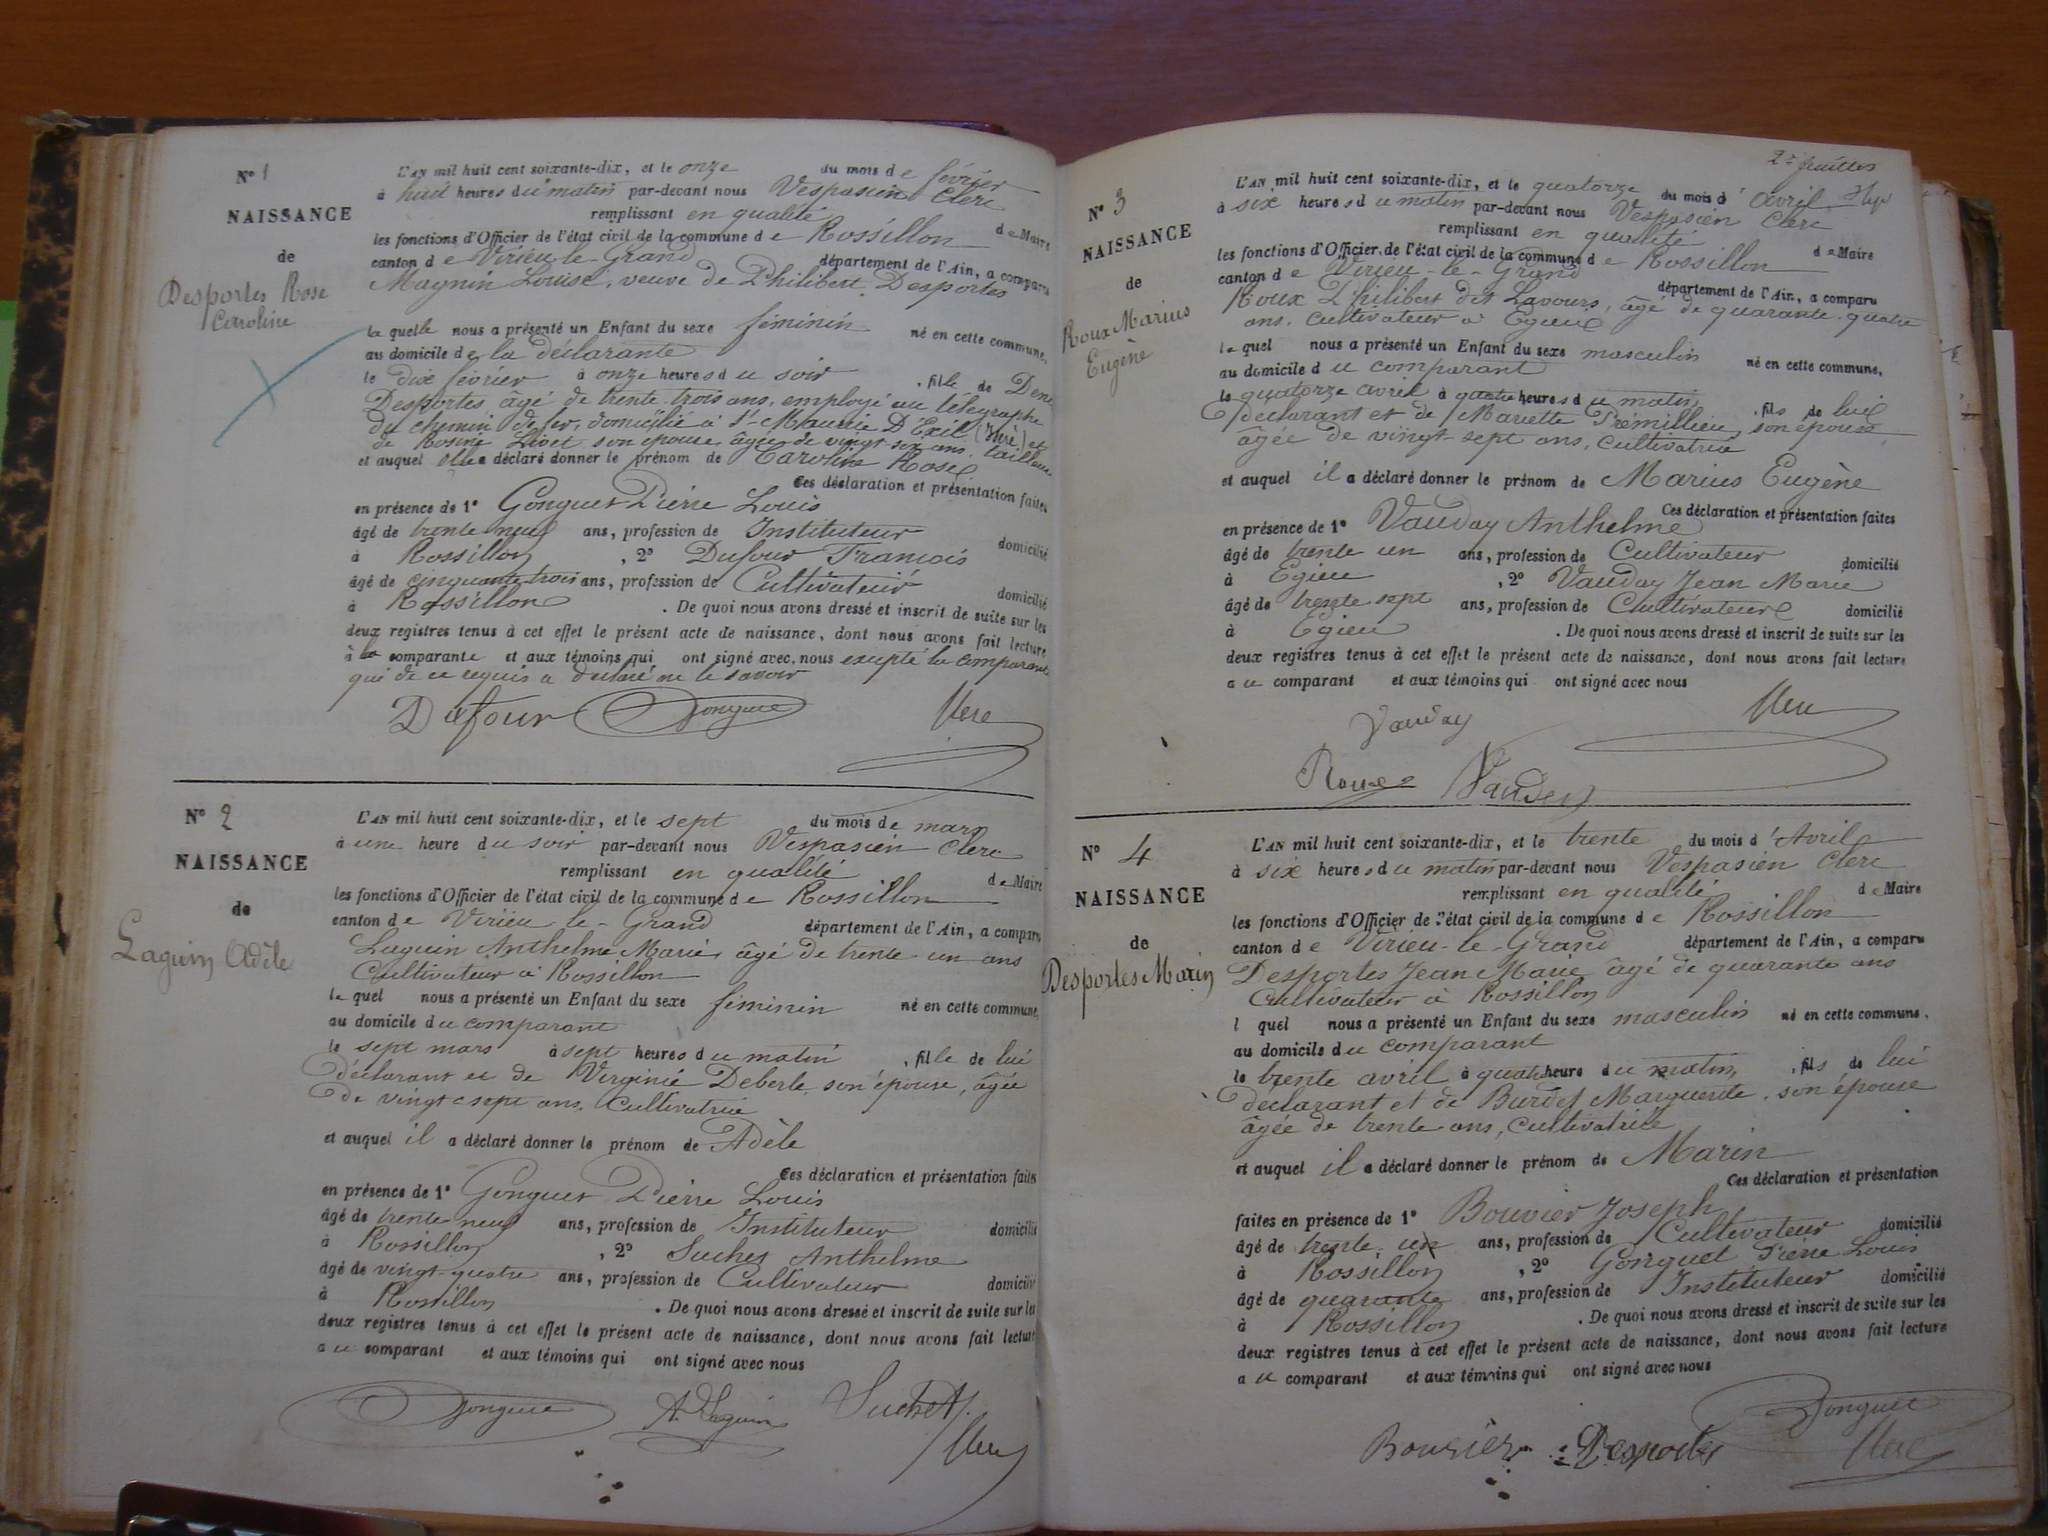 N° 1
NAISSANCE
de
Desportes Rose
Caroline
L'AN mil huit cent soixante-dix, et le onze du mois de février
à huit heures du matin par-devant nous Vespasien Clerc
remplissant en qualité de Maire
les fonctions d'Officier de l'état civil de la commune de Rossillon
canton de Virieu-le-Grand département de l'Ain, a comparu
Magnin Louise, veuve de Philibert Desportes
laquelle nous a présenté un Enfant du sexe féminin né en cette commune,
au domicile de la déclarante
le dix février à onze heures du soir, fille de
Desportes âgé de trente-trois ans, employé au télégraphe
du chemin de fer, domicilié à St-Maurice D'Exil (Isère) et
de Rosine son épouse, âgée de vingt ans,
et auquel elle a déclaré donner le prénom de Caroline Rose
Ces déclaration et présentation faites
en présence de 1° Gonguet Pierre Louis
âgé de trente neuf ans, profession de Instituteur domicilié
à Rossillon, 2° Dufour François
âgé de cinquante trois ans, profession de Cultivateur domicilié
à Rossillon. De quoi nous avons dressé et inscrit de suite sur les
deux registres tenus à cet effet le présent acte de naissance, dont nous avons fait lecture
à la comparante et aux témoins qui ont signé avec nous excepté la comparante
qui de ce requis a déclaré ne le savoir
Dufour Gonguet Clerc
N° 2
NAISSANCE
de
Laguin Adèle
L'AN mil huit cent soixante-dix, et le sept du mois de mars
à une heure du soir par-devant nous Vespasien Clerc
remplissant en qualité de Maire
les fonctions d'Officier de l'état civil de la commune de Rossillon
canton de Virieu-le-Grand département de l'Ain, a comparu
Laguin Anthelme Marie, âgé de trente un ans
Cultivateur à Rossillon
lequel nous a présenté un Enfant du sexe féminin né en cette commune,
au domicile du comparant
le sept mars à sept heures du matin, fille de lui
déclarant et de Virginie Deberle son épouse, âgée
de vingt-sept ans, Cultivatrice
et auquel il a déclaré donner le prénom de Adèle
Ces déclaration et présentation faites
en présence de 1° Gonguet Pierre Louis
âgé de trente neuf ans, profession de Instituteur domicilié
à Rossillon, 2° Suchet Anthelme
âgé de vingt-quatre ans, profession de Cultivateur domicilié
à Rossillon. De quoi nous avons dressé et inscrit de suite sur les
deux registres tenus à cet effet le présent acte de naissance, dont nous avons fait lecture
au comparant et aux témoins qui ont signé avec nous
Gonguet A. Laguin Suchet A. Clerc
2e feuillet
N° 3
NAISSANCE
de
Roux Marius
Eugène
L'AN mil huit cent soixante-dix, et le quatorze du mois d'avril
à six heures du matin par-devant nous Vespasien Clerc
remplissant en qualité de Maire
les fonctions d'Officier de l'état civil de la commune de Rossillon
canton de Virieu-le-Grand département de l'Ain, a comparu
Roux Philibert dit Lavours, âgé de quarante-quatre
ans, cultivateur à Egieu
lequel nous a présenté un Enfant du sexe masculin né en cette commune,
au domicile du comparant
le quatorze avril à quatre heures du matin, fils de lui
déclarant et de Mariette Prémillieu, son épouse,
âgée de vingt-sept ans, cultivatrice
et auquel il a déclaré donner le prénom de Marius Eugène
Ces déclaration et présentation faites
en présence de 1° Vauday Anthelme
âgé de trente un ans, profession de Cultivateur domicilié
à Egieu, 2° Vauday Jean Marie
âgé de trente sept ans, profession de Cultivateur domicilié
à Egieu. De quoi nous avons dressé et inscrit de suite sur les
deux registres tenus à cet effet le présent acte de naissance, dont nous avons fait lecture
au comparant et aux témoins qui ont signé avec nous
Vauday Clerc
Roux Vauday
N° 4
NAISSANCE
de
Desportes Marin
L'AN mil huit cent soixante-dix, et le trente du mois d'Avril
à six heures du matin par-devant nous Vespasien Clerc
remplissant en qualité de Maire
les fonctions d'Officier de l'état civil de la commune de Rossillon
canton de Virieu-le-Grand département de l'Ain, a comparu
Desportes Jean Marie âgé de quarante ans
Cultivateur à Rossillon
lquel nous a présenté un Enfant du sexe masculin né en cette commune,
au domicile du comparant
le trente avril à quatre heure du matin, fils de lui
déclarant et de Burdet Marguerite, son épouse
âgée de trente ans, cultivatrice
et auquel il a déclaré donner le prénom de Marin
Ces déclaration et présentation
faites en présence de 1° Bouvier Joseph
âgé de trente un ans, profession de Cultivateur domicilié
à Rossillon, 2° Gonguet Pierre Louis
âgé de quarante ans, profession de Instituteur domicilié
à Rossillon. De quoi nous avons dressé et inscrit de suite sur les
deux registres tenus à cet effet le présent acte de naissance, dont nous avons fait lecture
au comparant et aux témoins qui ont signé avec nous
Gonguet
Bouvier Desportes Clerc